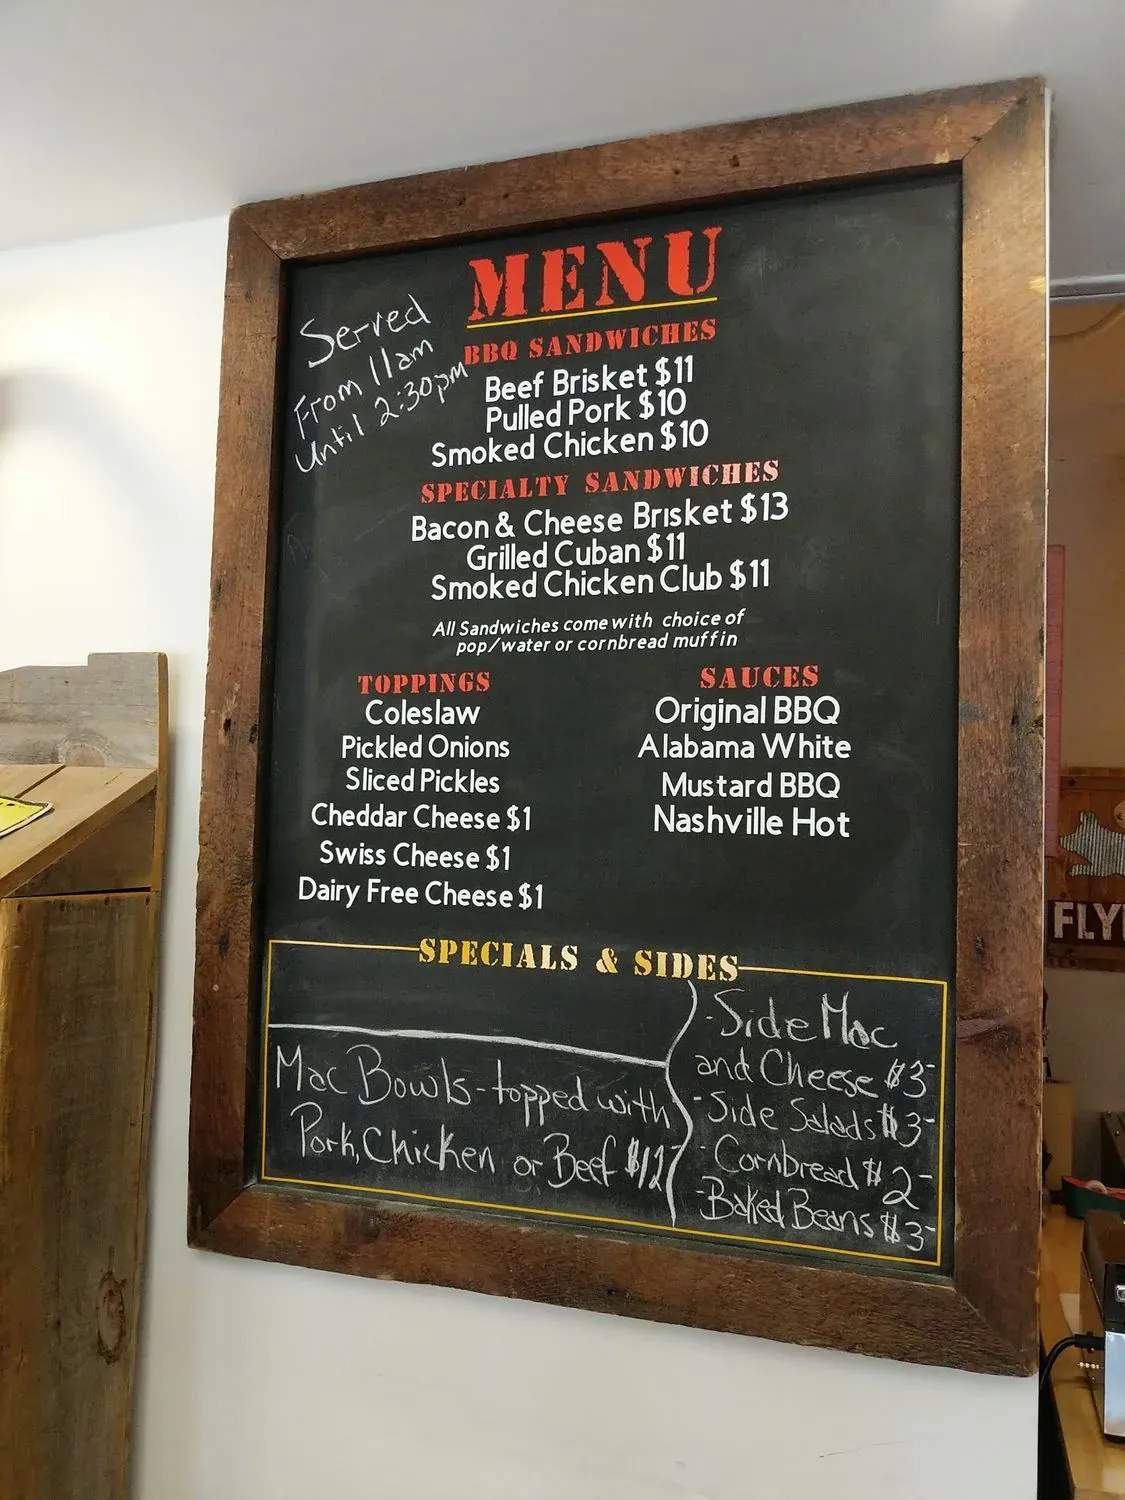 MENU
Served
From 11am
Until 2:30pm
BBQ SANDWICHES
Beef Brisket $11
Pulled Pork $10
Smoked Chicken $10
SPECIALTY SANDWICHES
Bacon & Cheese Brisket $13
Grilled Cuban $11
Smoked Chicken Club $11
All Sandwiches come with choice of
pop/water or cornbread muffin
TOPPINGS
Coleslaw
Pickled Onions
Sliced Pickles
Cheddar Cheese $1
Swiss Cheese $1
Dairy Free Cheese $1
SAUCES
Original BBQ
Alabama White
Mustard BBQ
Nashville Hot
SPECIALS & SIDES
Mac Bowls - topped with
Pork, Chicken or Beef $12
- Side Mac
and Cheese $3-
- Side Salads $3-
- Cornbread $2-
- Baked Beans $3-